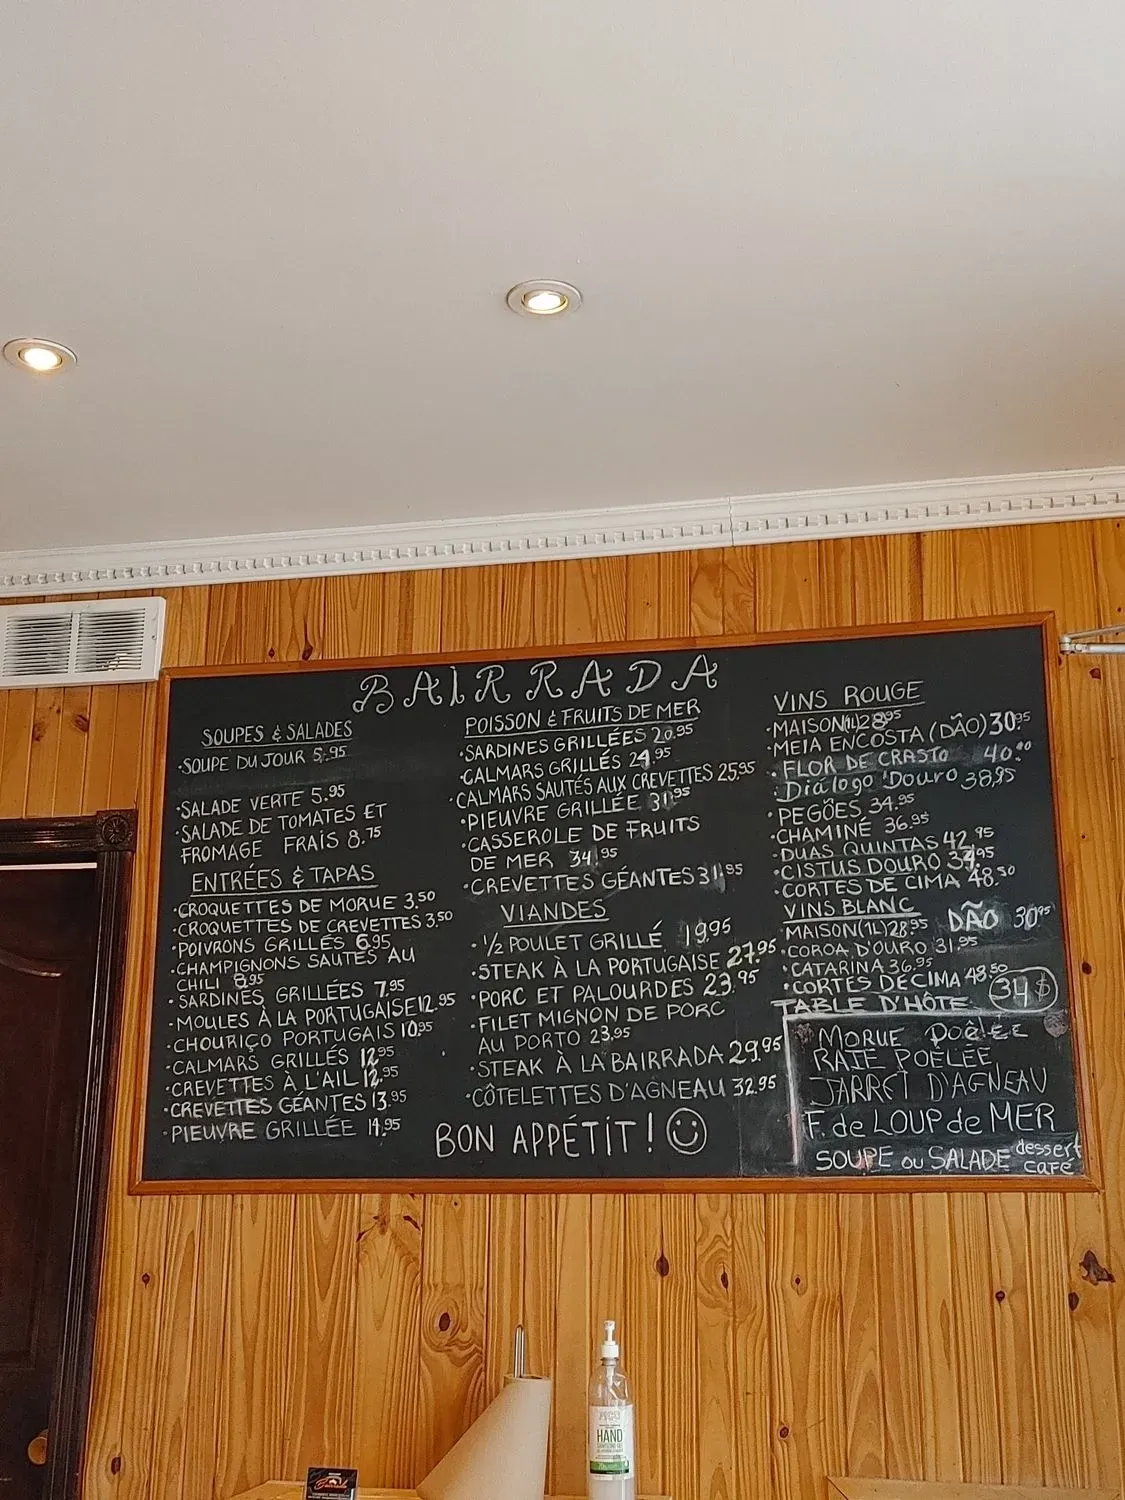 BAIRRADA
SOUPES & SALADES
·SOUPE DU JOUR 5.95
·SALADE VERTE 5.95
·SALADE DE TOMATES ET
FROMAGE FRAIS 8.75
ENTRÉES & TAPAS
·CROQUETTES DE MORUE 3.50
·CROQUETTES DE CREVETTES 3.50
·POIVRONS GRILLÉS 6.95
·CHAMPIGNONS SAUTÉS AU
CHILI 8.95
·SARDINES GRILLÉES 7.95
·MOULES À LA PORTUGAISE 12.95
·CHOURIÇO PORTUGAIS 10.95
·CALMARS GRILLÉS 12.95
·CREVETTES À L'AIL 12.95
·CREVETTES GÉANTES 13.95
·PIEUVRE GRILLÉE 14.95
POISSON & FRUITS DE MER
·SARDINES GRILLÉES 20.95
·CALMARS GRILLÉS 24.95
·CALMARS SAUTÉS AUX CREVETTES 25.95
·PIEUVRE GRILLÉE 31.95
·CASSEROLE DE FRUITS
DE MER 34.95
·CREVETTES GÉANTES 31.95
VIANDES
·1/2 POULET GRILLÉ 19.95
·STEAK À LA PORTUGAISE 27.95
·PORC ET PALOURDES 23.95
·FILET MIGNON DE PORC
AU PORTO 23.95
·STEAK À LA BAIRRADA 29.95
·CÔTELETTES D'AGNEAU 32.95
BON APPÉTIT!
VINS ROUGE
·MAISON(1L) 28.95
·MEIA ENCOSTA (DÃO) 30.95
·FLOR DE CRASTO 40.00
·Diálogo Douro 38,95
·PEGÕES 34.95
·CHAMINÉ 36.95
·DUAS QUINTAS 42.95
·CISTUS DOURO 34.95
·CORTES DE CIMA 48.50
VINS BLANC
·MAISON(1L) 28.95 DÃO 30.95
·COROA D'OURO 31.95
·CATARINA 36.95
·CORTES DE CIMA 48.50
TABLE D'HÔTE 34$
MORUE POÊLÉE
RAIE POÊLÉE
JARRET D'AGNEAU
F. de LOUP de MER
SOUPE ou SALADE dessert
café
HAND